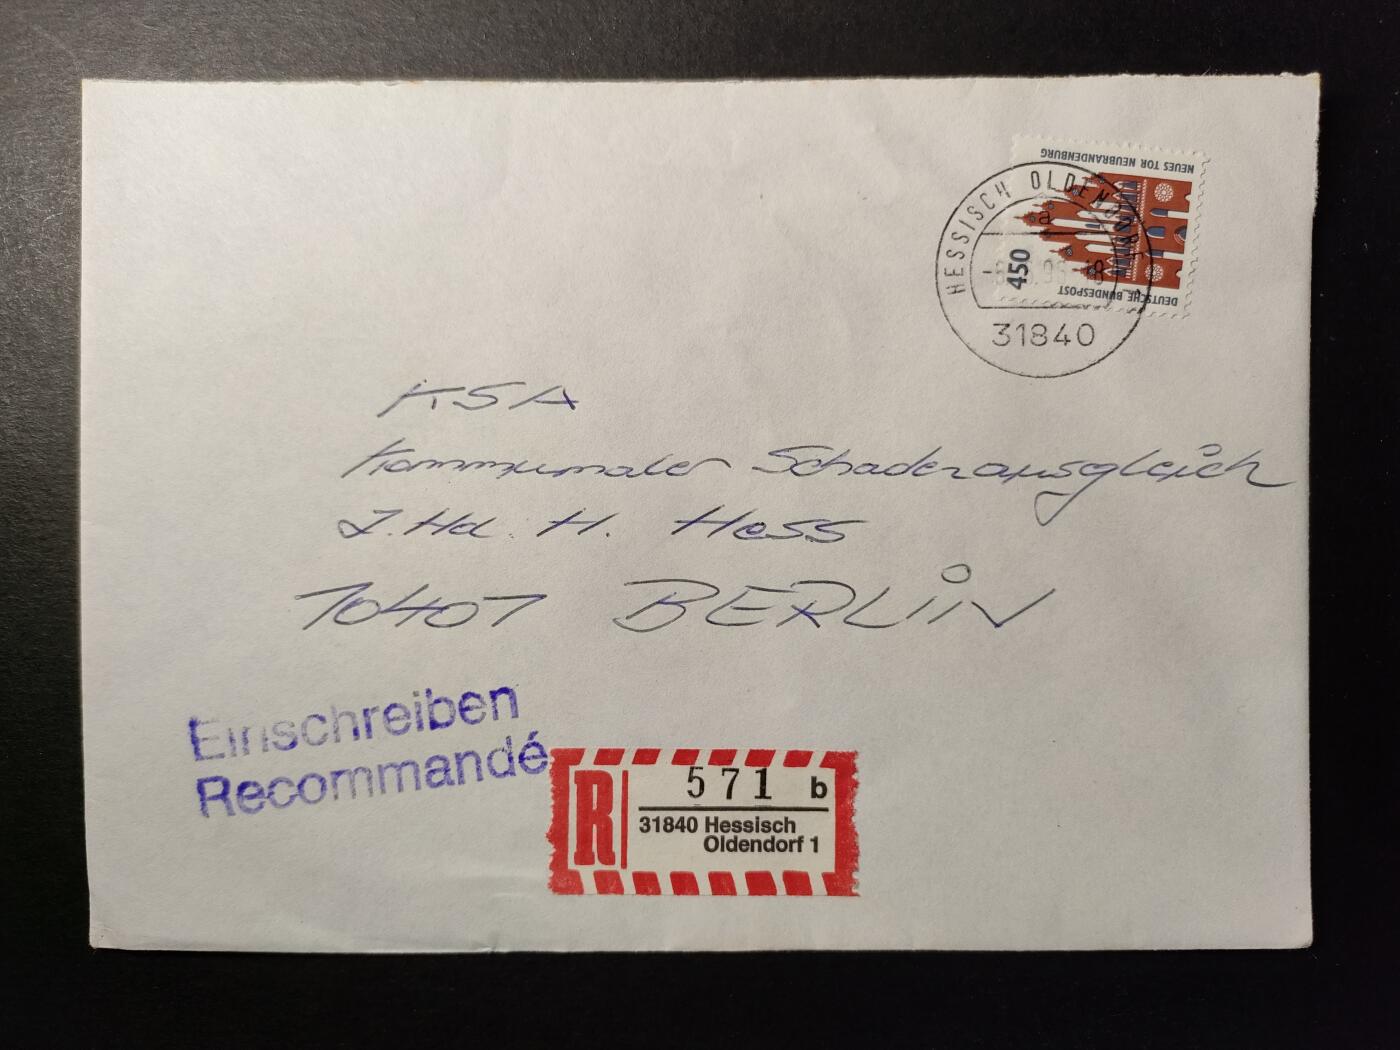 NEUES TOR NEUBRANDENBURG
450
DEUTSCHE BUNDESPOST
HESSISCH OLDENDORF 1
a
31840
KSA
Kommunaler Schadenausgleich
Z.Hd. H. Hess
10407 BERLIN
Einschreiben
Recommandé
R
571 b
31840 Hessisch
Oldendorf 1